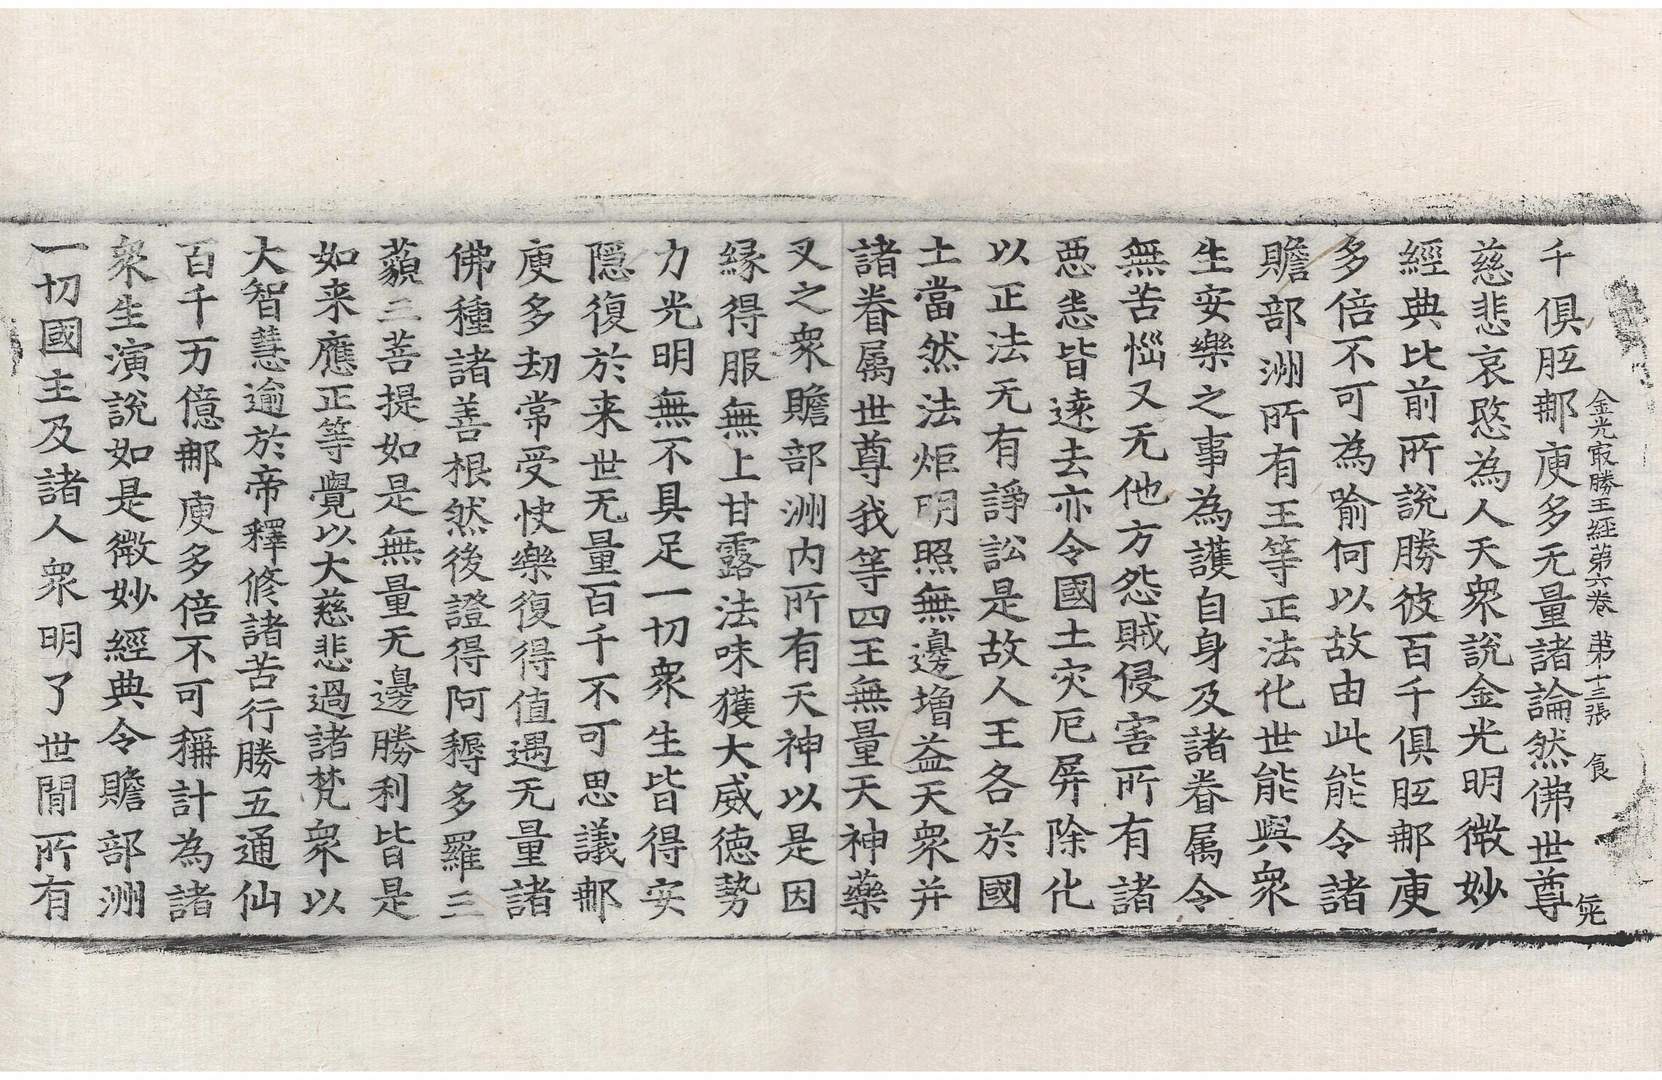 金光㝡勝王經第六卷　第十三張　食
千俱胝那庾多无量諸論然佛世尊
慈悲哀愍為人天眾說金光明微妙
經典比前所說勝彼百千俱胝那庾
多倍不可為喻何以故由此能令諸
贍部洲所有王等正法化世能與眾
生安樂之事為護自身及諸眷属令
無苦惱又无他方怨賊侵害所有諸
惡悉皆遠去亦令國土灾厄屏除化
以正法无有諍訟是故人王各於國
土當然法炬明照無邊增益天眾并
諸眷属世尊我等四王無量天神藥
叉之眾贍部洲內所有天神以是因
緣得服無上甘露法味獲大威德勢
力光明無不具足一切眾生皆得安
隱復於来世无量百千不可思議那
庾多劫常受快樂復得值遇无量諸
佛種諸善根然後證得阿耨多羅三
藐三菩提如是無量无邊勝利皆是
如来應正等覺以大慈悲過諸梵眾以
大智慧逾於帝釋修諸苦行勝五通仙
百千万億那庾多倍不可稱計為諸
眾生演說如是微妙經典令贍部洲
一切國主及諸人眾明了世間所有